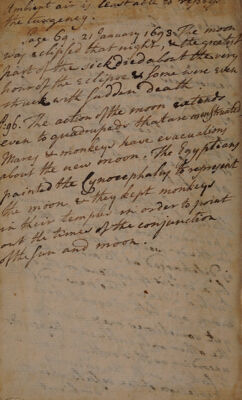 Ambient air is least able to repress
the turgency.
Page 69. 21 January 1693. The moon
was eclipsed that night, & the greatest
part of the sick died about the very
hour of the Eclipse & some were even
struck with sudden death.
P. 96. The action of the moon extends
even to quadrupeds that are menstruated
Mares & monkeys have evacuations
about the new moon. The Egyptians
painted the Cynocephalus to represent
the moon & they kept monkeys
in their temples in order to point
out the times of the conjunction
of the sun and moon.